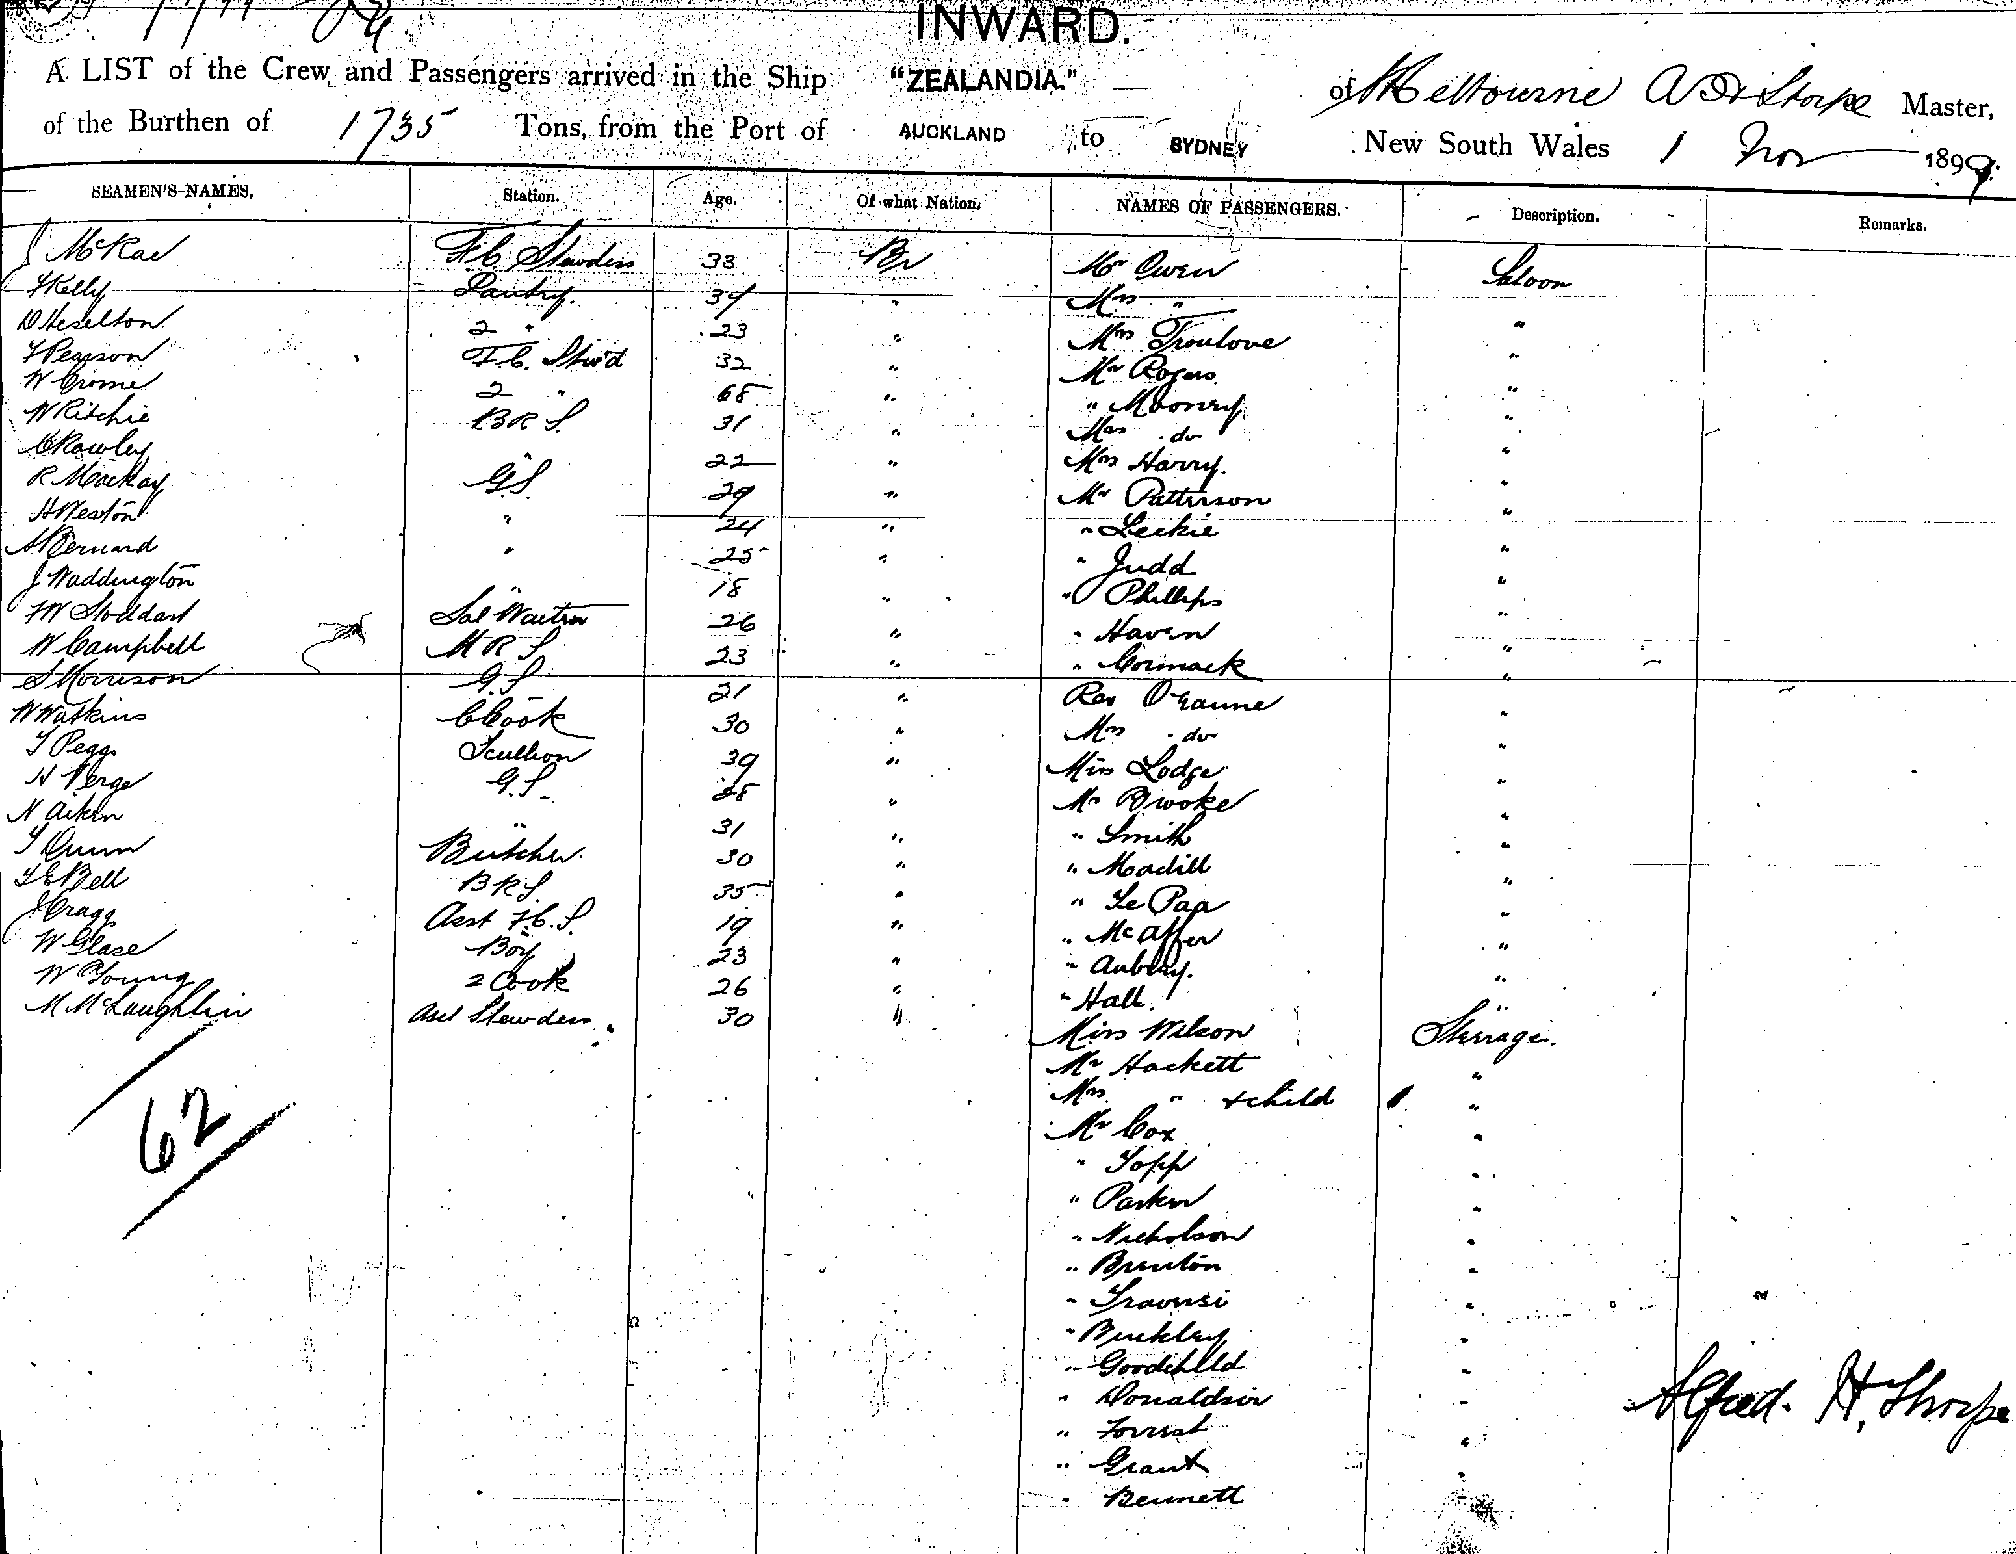 INWARD.
A LIST of the Crew and Passengers arrived in the Ship "ZEALANDIA." of Melbourne A H Thorpe Master,
of the Burthen of 1735 Tons, from the Port of AUCKLAND to SYDNEY New South Wales 1 Nov 1899.
SEAMEN'S NAMES. Station. Age. Of what Nation. NAMES OF PASSENGERS. Description. Remarks.
J McRae F.C. Stewdess 33 Br Mr Owen Saloon
Kelly Pantry. 34 " Mrs "
D Heselton 2 " 23 " Mrs Troulove "
Pearson F.C. Stw'd 32 " Mr Rogers "
W Crome 2 " 65 " " Mooney "
W Ritchie B R S. 31 " Mrs do "
C Rowley " 22 " Mrs Harry. "
R Mackay G.S. 29 " Mr Patterson "
H Weston " 24 " " Leckie "
A Bernard " 25 " " Judd "
J Waddington " 18 " " Phillips "
W Stoddart Sal Waiter 26 " Haven "
W Campbell M R S 23 " " Cormack "
S Morrison G.S. 21 " Rev "
W Watkins C Cook 30 " Mrs do "
T Pegg Scullion 39 " Miss Lodge "
H Verge G.S. 28 " Mr Brooke "
N Aiken " 31 " " Smith "
T Quinn Butcher. 30 " " Madill "
Bell B R S. 35 " " Le Pan "
J Cragg Asst F.C.S. 19 " " McAffer "
W Glase Boy 23 " " Aubrey. "
W Young 2 Cook 26 " " Hall. "
M McLaughlin Asst Stewdess 30 " Miss Wilson Steerage.
Mr Hackett "
Mrs " & child 1 "
62
Mr Cox "
" Topp "
" Parker "
" Nicholson "
" Brenton "
" Traversi "
" Buckley "
" Goodchild "
" Donaldson "
" Forrest "
" Grant "
" Bennett
Alfred. H. Thorpe